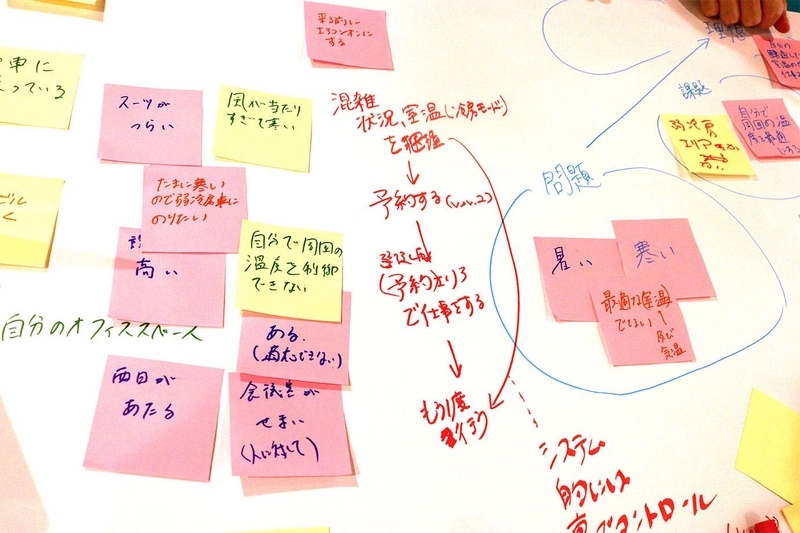 来る前に
エアコンオンに
する
車に
っている
スーツが
つらい
風が当たり
すぎて寒い
たまに寒い
ので弱冷房車に
のりたい
高い
自分で周囲の
温度を制御
できない
自分のオフィススペース
ある.
西日が
あたる
会議室が
せまい
(人に対して)
混雑
状況、室温(冷房モード)
を
予約する(ver.2)
(予約エリア)
で仕事をする
もう1度
システム
的には
コントロール
理想
課題
弱冷房
エリア
自分で
周囲の温
度を最適
にする
問題
暑い
寒い
最適な室温
でない
及び
気温